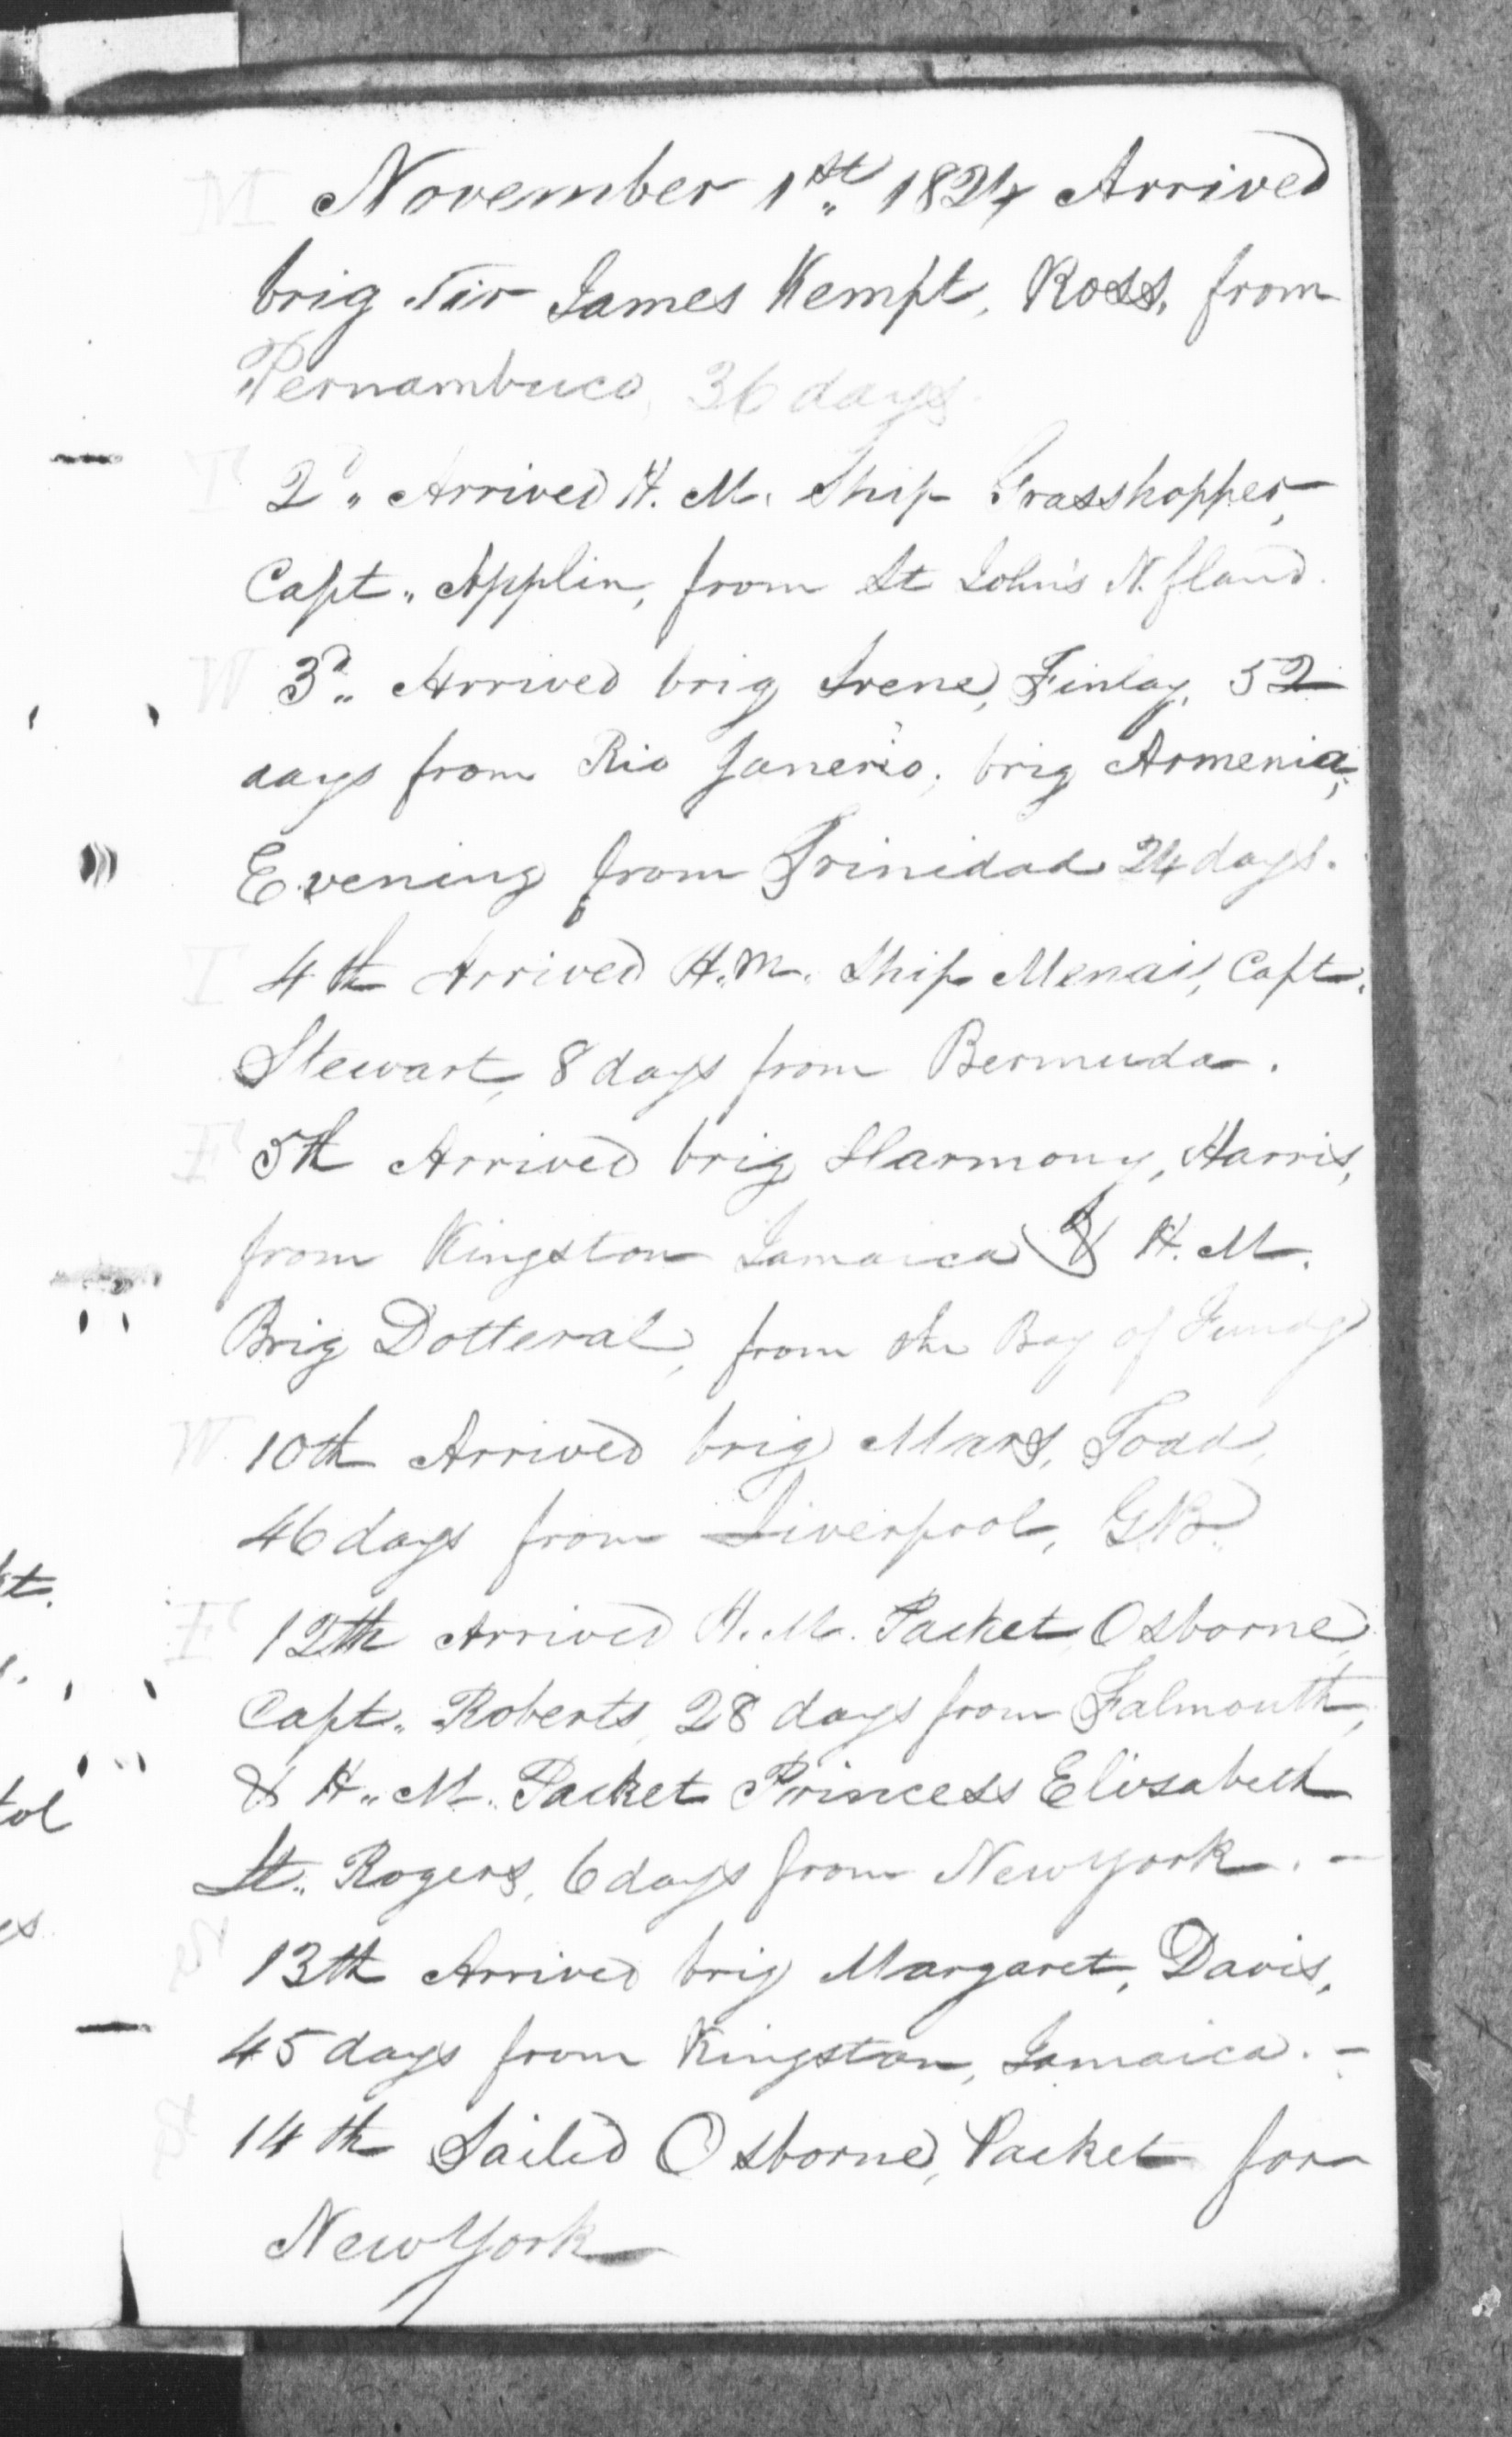 M November 1st 1824 Arrived
brig Sir James Kempt, Ross, from
Pernambuco, 36 days.
T 2d Arrived H. M. Ship Grasshopper,
Capt. Applin, from St John's N.fland.
W 3d Arrived brig Irene, Finlay, 52
days from Rio Janerio; brig Armenia,
Evening from Trinidad 24 days.
T 4th Arrived H. M. Ship Menai, Capt.
Stewart, 8 days from Bermuda.
F 5th Arrived brig Harmony, Harris,
from Kingston Jamaica & H. M.
Brig Dotteral, from the Bay of Fundy
W 10th Arrived brig Mars, Toad,
46 days from Liverpool, GB.
F 12th Arrived H. M. Packet Osborne,
Capt. Roberts, 28 days from Falmouth,
& H. M. Packet Princess Elisabeth
Lt. Rogers, 6 days from New York. -
13th Arrived brig Margaret, Davis,
45 days from Kingston, Jamaica. -
14th Sailed Osborne, Packet for
New York